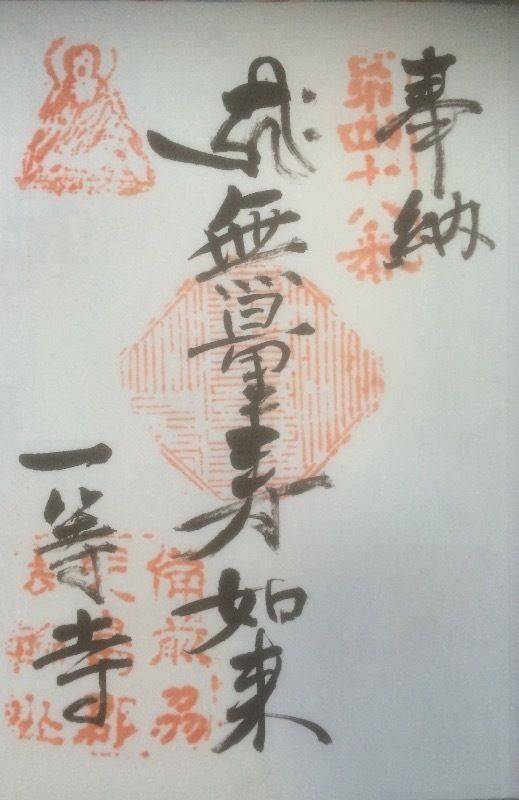 奉納
第四十八番
無量寿如来
一等寺
備前